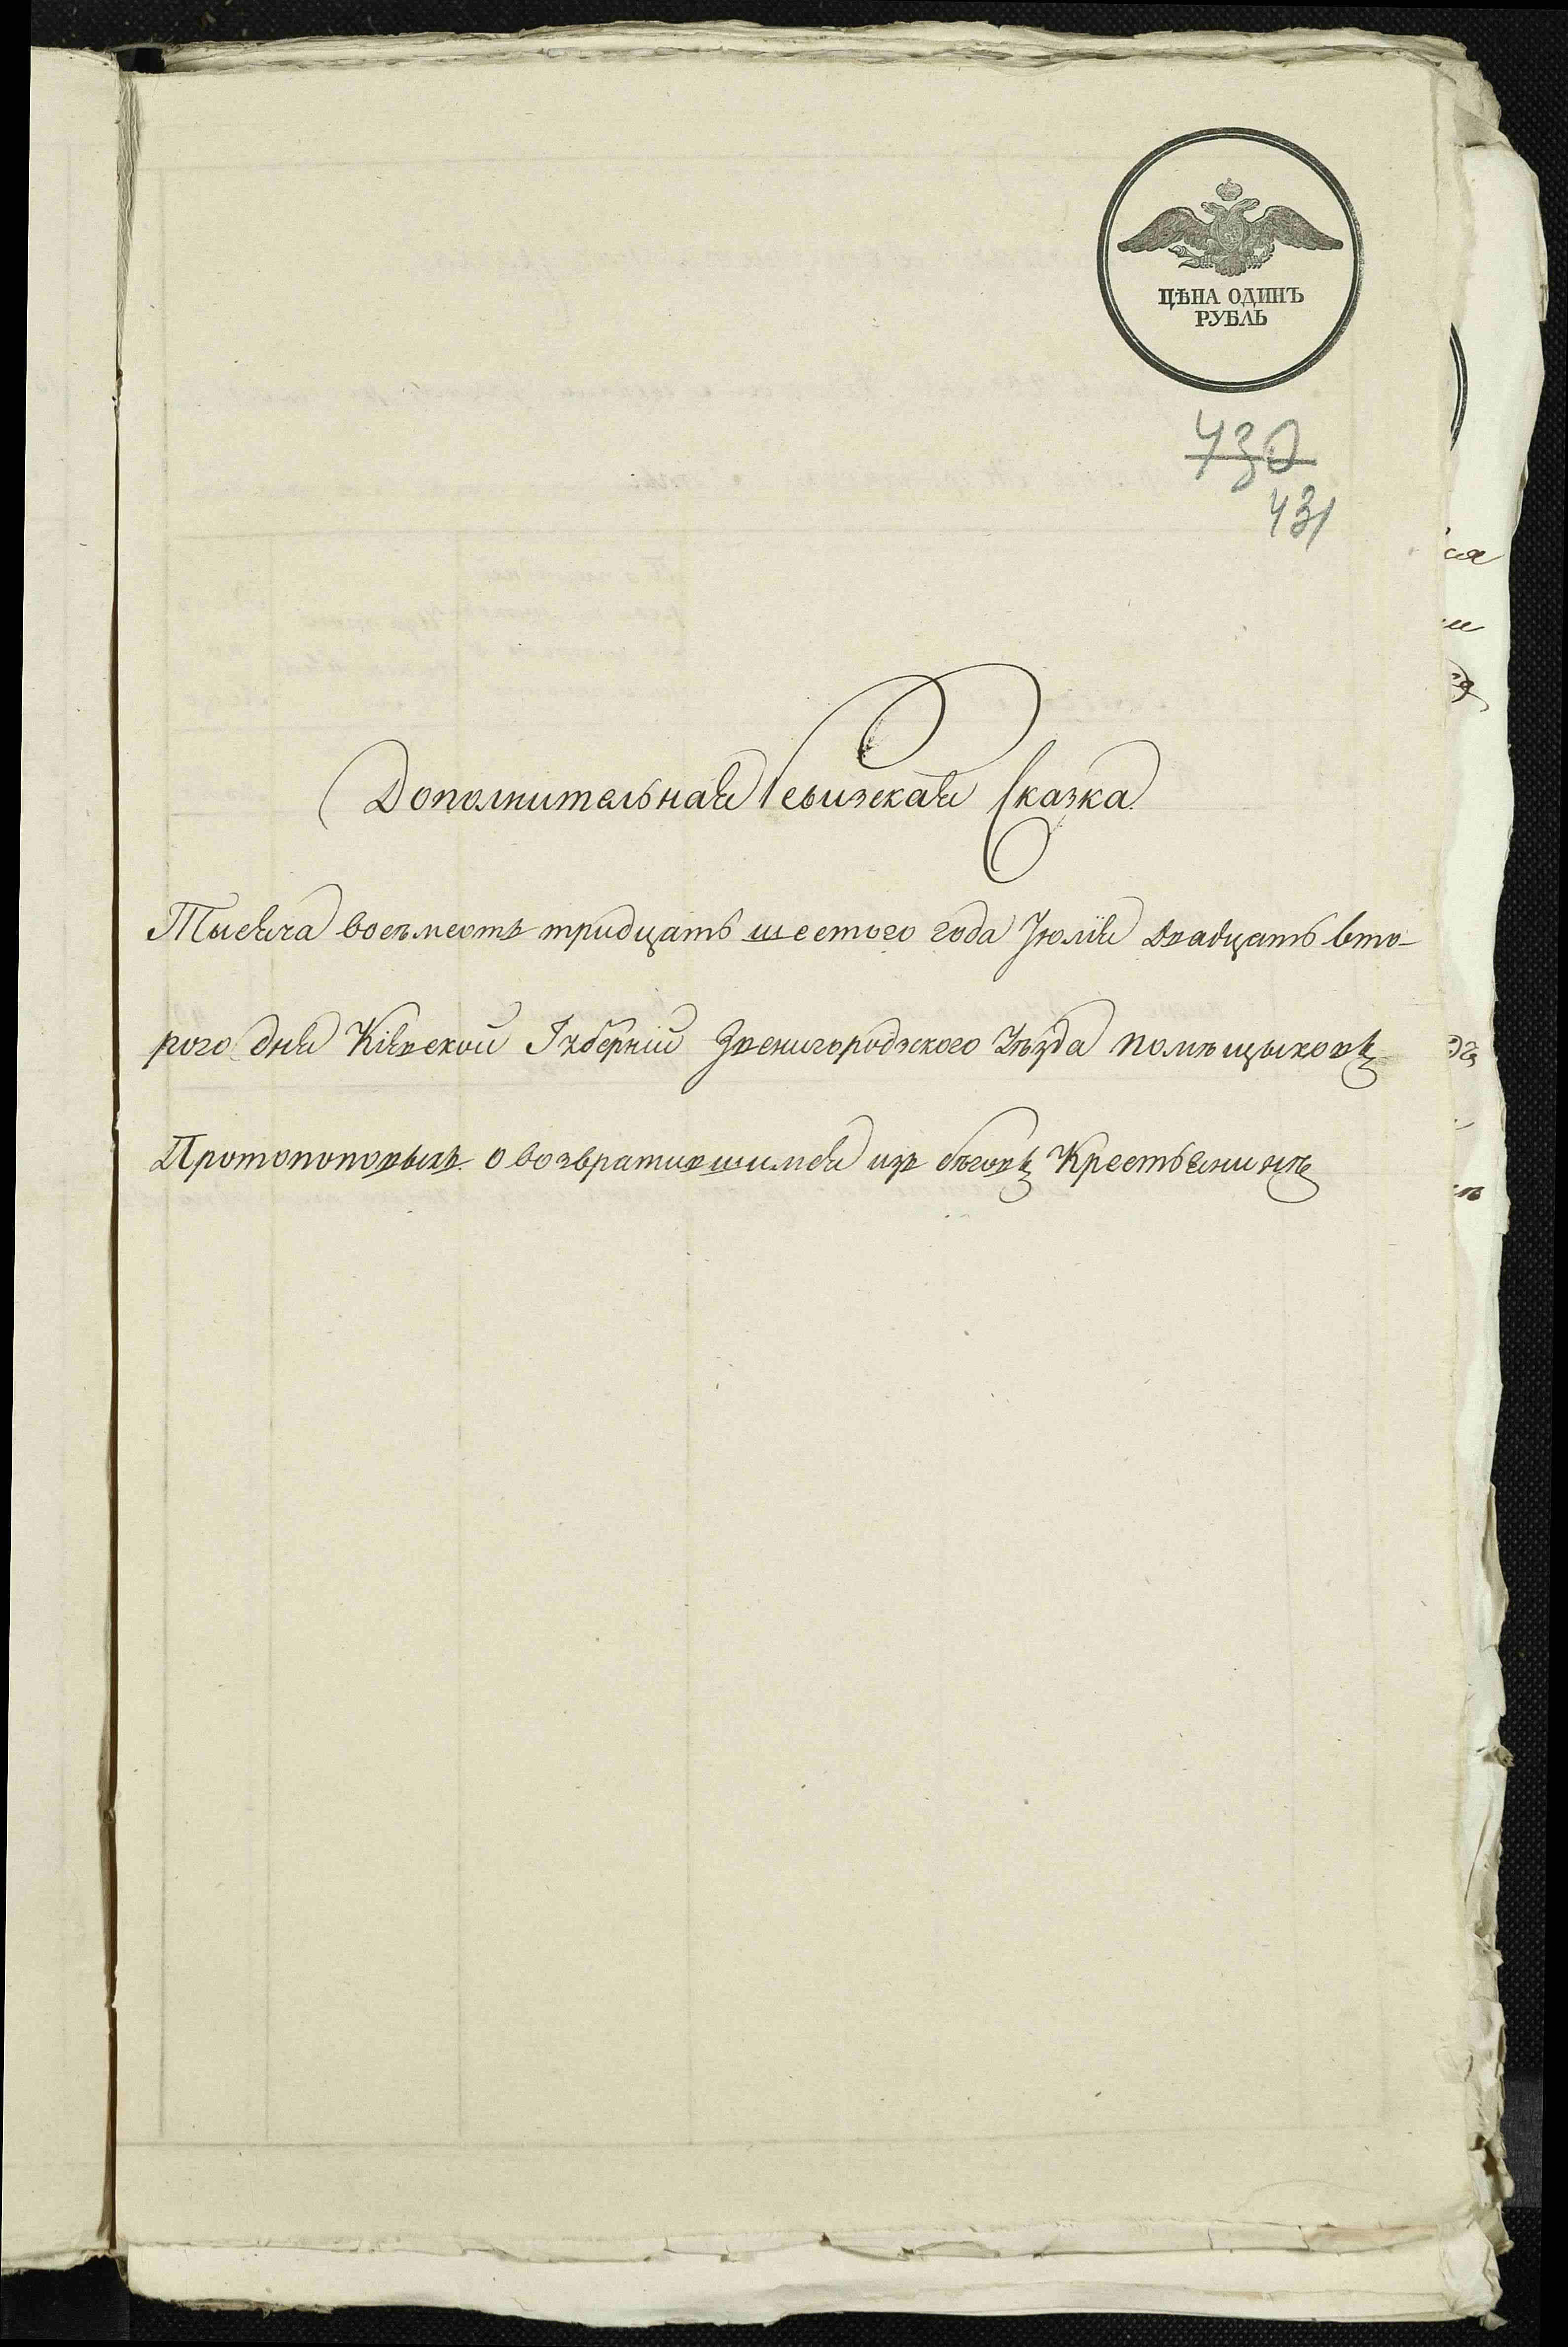 ЦѢНА ОДИНЪ
РУБЛЬ
432
431
Дополнительная Ревизская Сказка
Тысяча восемсотъ тридцать шестого года Июлія двадцать вто-
рого дня Кіевской Губерніи Звенигородзского Уѣзда помѣщыковъ
Протопоповыхъ о возвратившимся изъ бѣговъ Крестьянинѣ